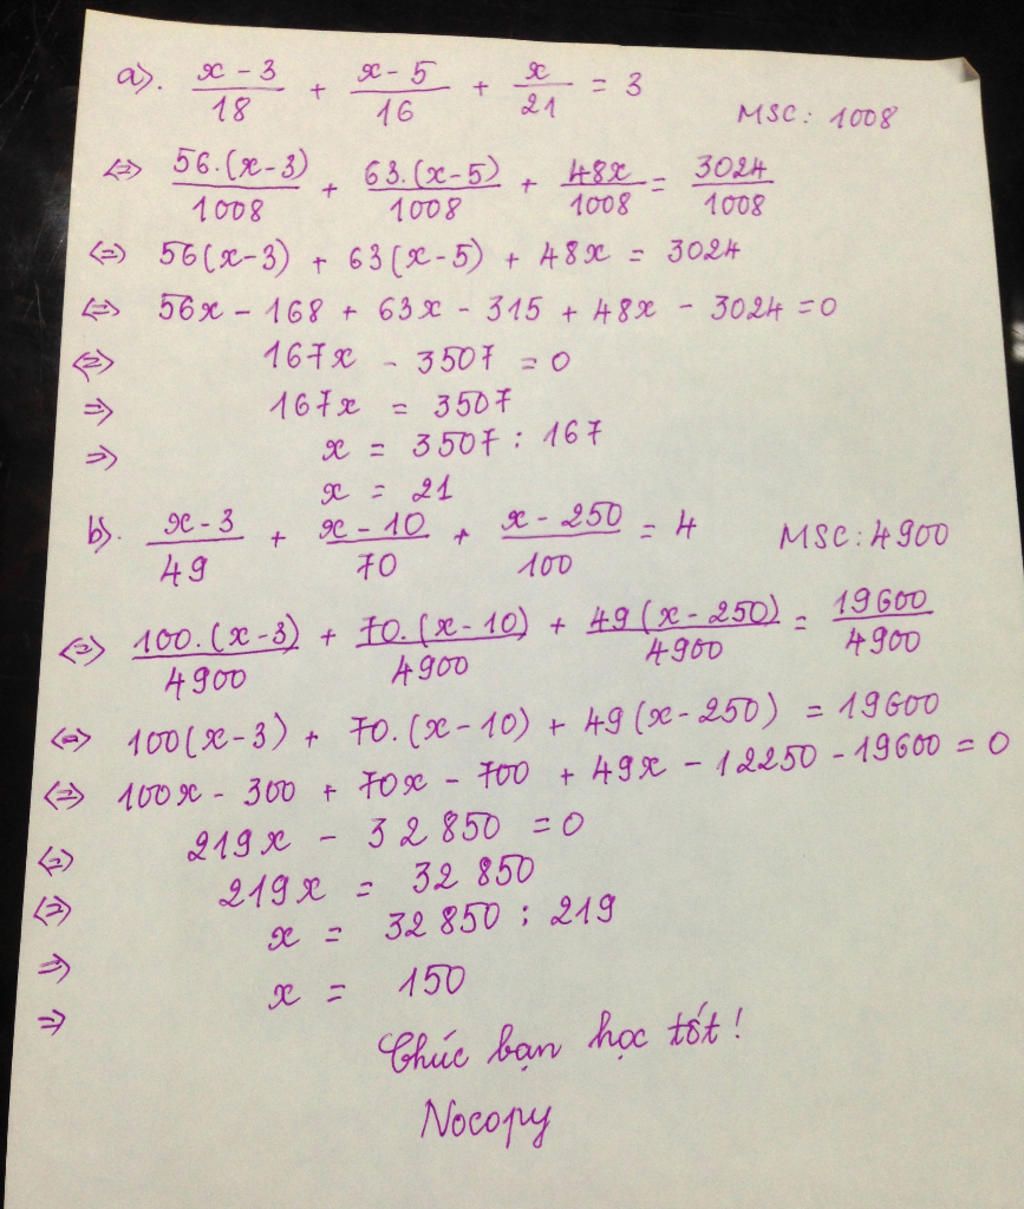 a). (x - 3)/18 + (x - 5)/16 + x/21 = 3 MSC: 1008
<=> 56.(x-3)/1008 + 63.(x-5)/1008 + 48x/1008 = 3024/1008
<=> 56(x-3) + 63(x-5) + 48x = 3024
<=> 56x - 168 + 63x - 315 + 48x - 3024 = 0
<=> 167x - 3507 = 0
=> 167x = 3507
=> x = 3507 : 167
x = 21
b). (x - 3)/49 + (x - 10)/70 + (x - 250)/100 = 4 MSC: 4900
<=> 100.(x-3)/4900 + 70.(x-10)/4900 + 49(x-250)/4900 = 19600/4900
<=> 100(x-3) + 70.(x-10) + 49(x-250) = 19600
<=> 100x - 300 + 70x - 700 + 49x - 12250 - 19600 = 0
<=> 219x - 32850 = 0
<=> 219x = 32850
=> x = 32850 : 219
=> x = 150
Chúc bạn học tốt!
Nocopy